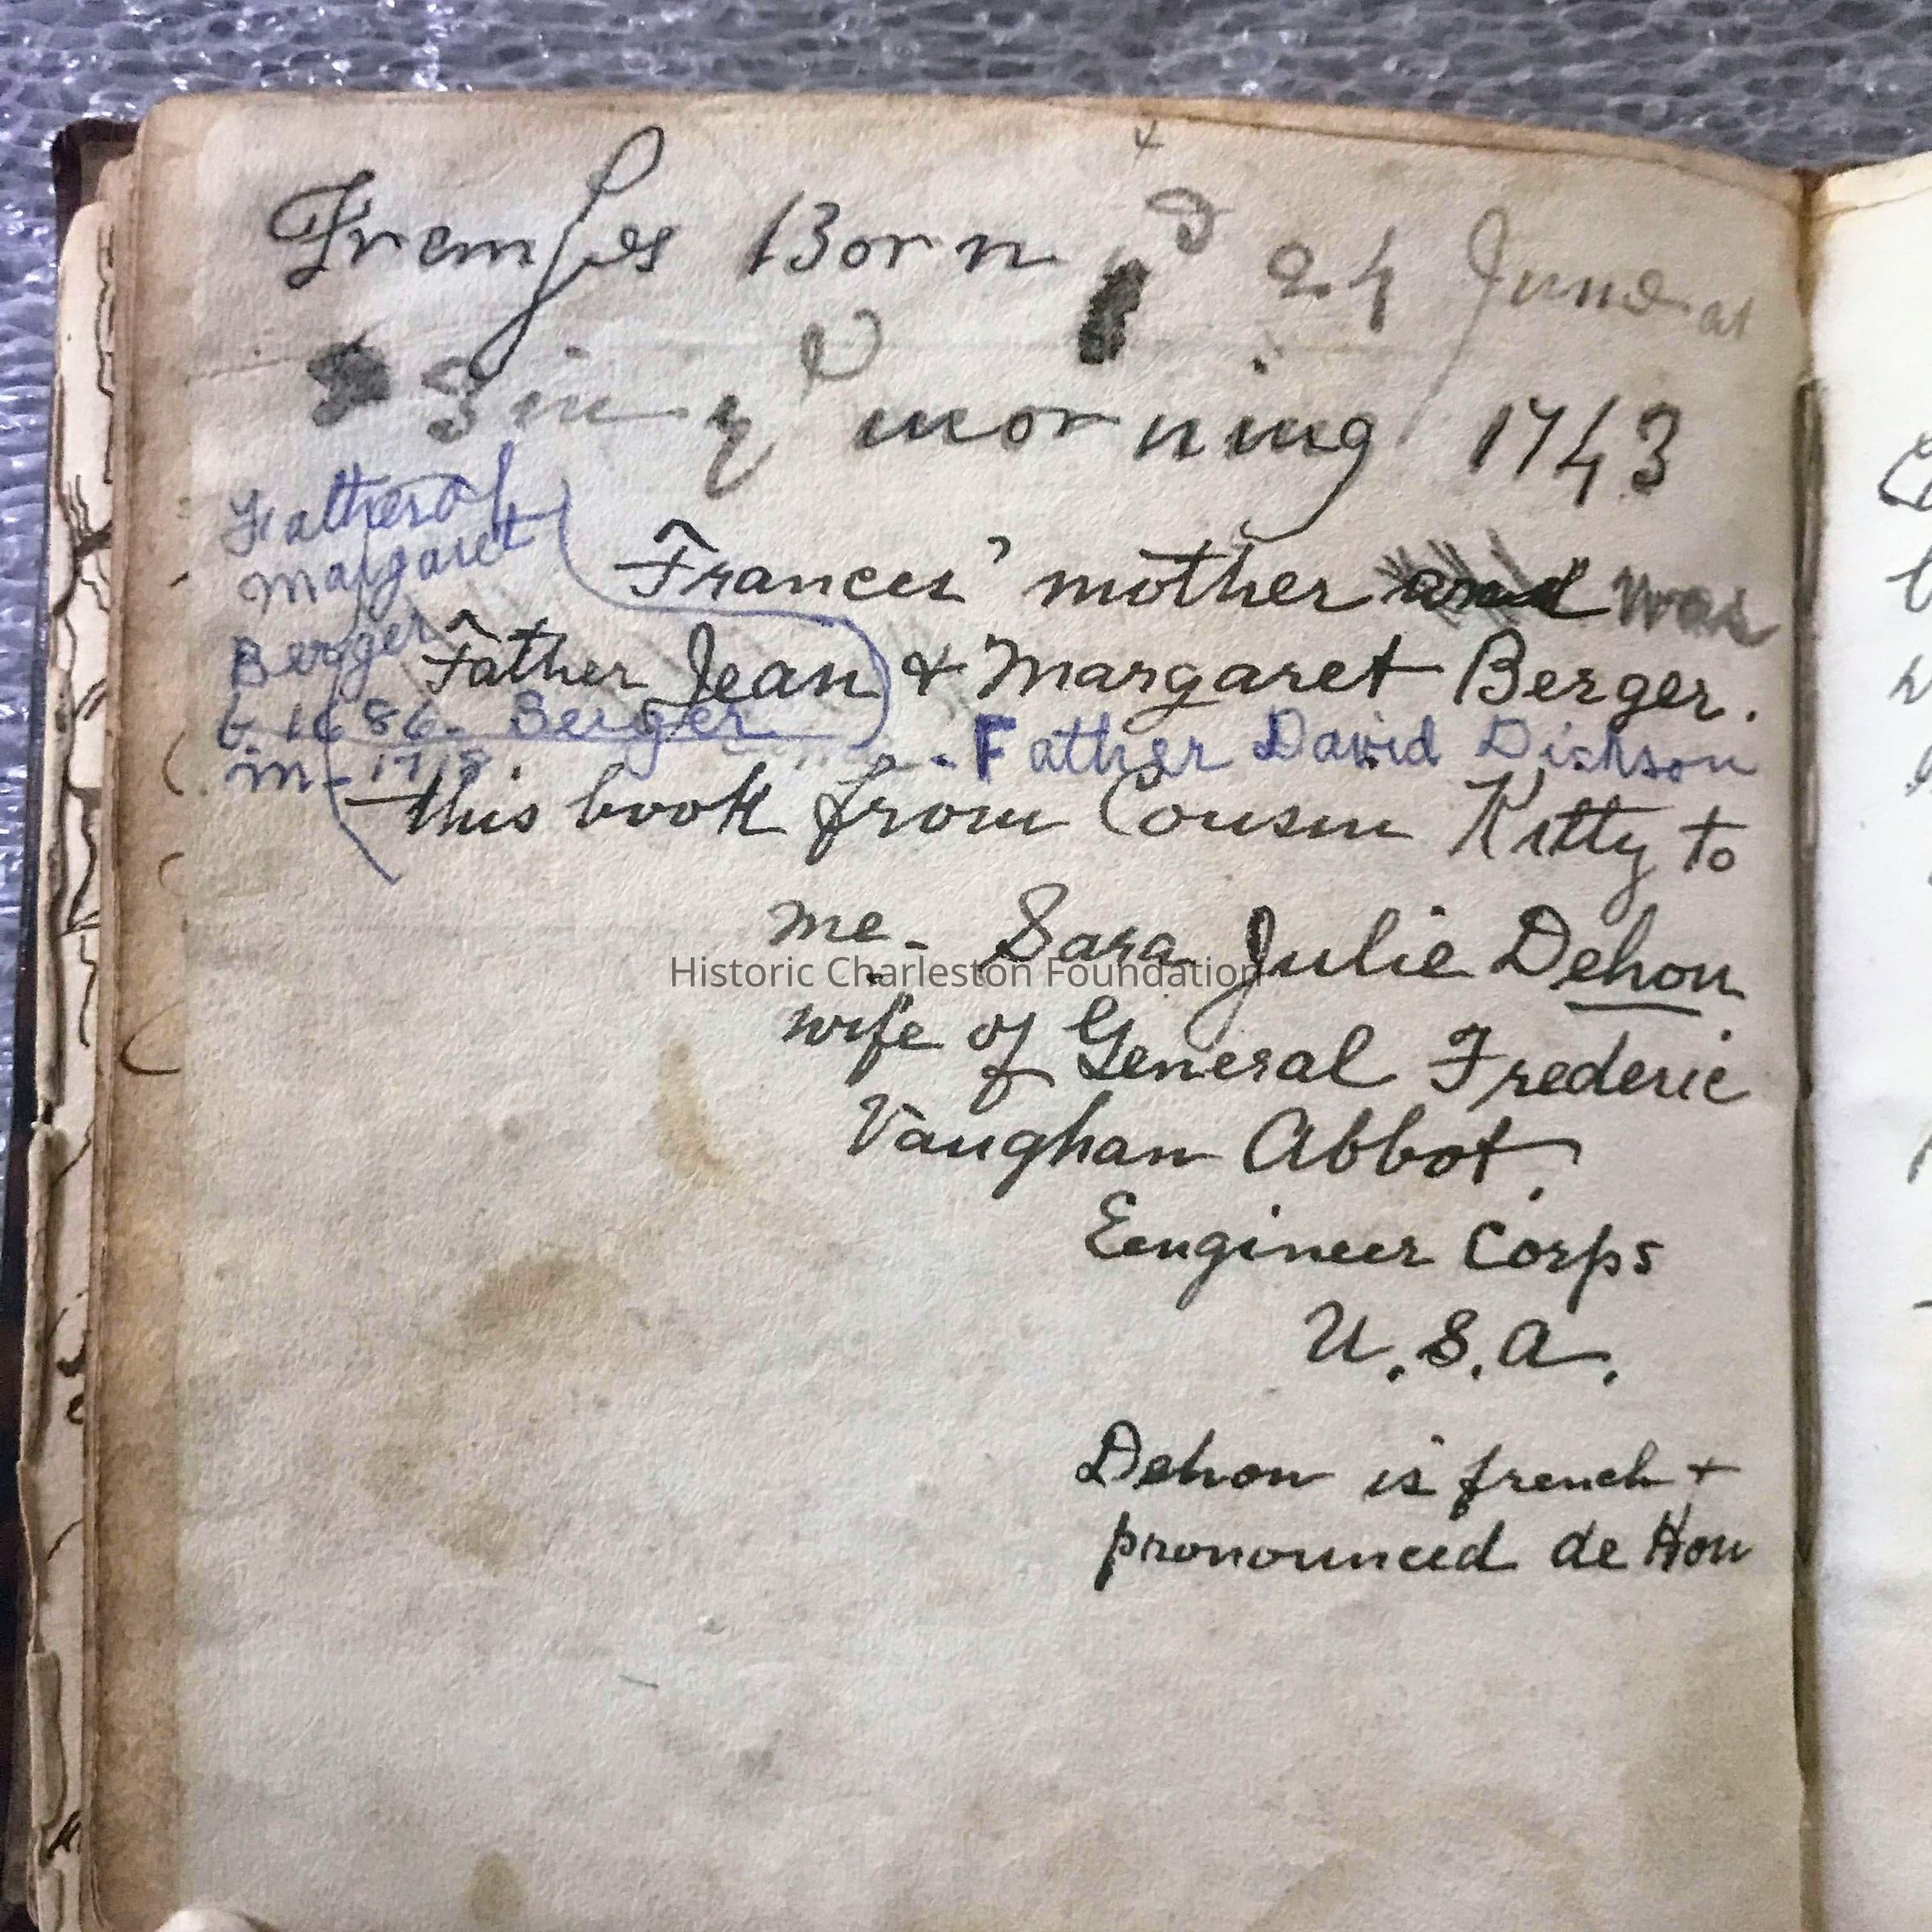 Franses Born yᵉ 24 June at
3 in yᵉ morning 1743
Father of
Margaret
Berger
b 1686. Berger
m - 1718.
Frances' mother and was
Father Jean & Margaret Berger.
- Father David Dickson
this book from Cousin Kitty to
me - Sara Julie Dehon
wife of General Frederic
Vaughan Abbot.
Eengineer Corps
U.S.A.
Dehon is french +
pronounced de Hon
Historic Charleston Foundation